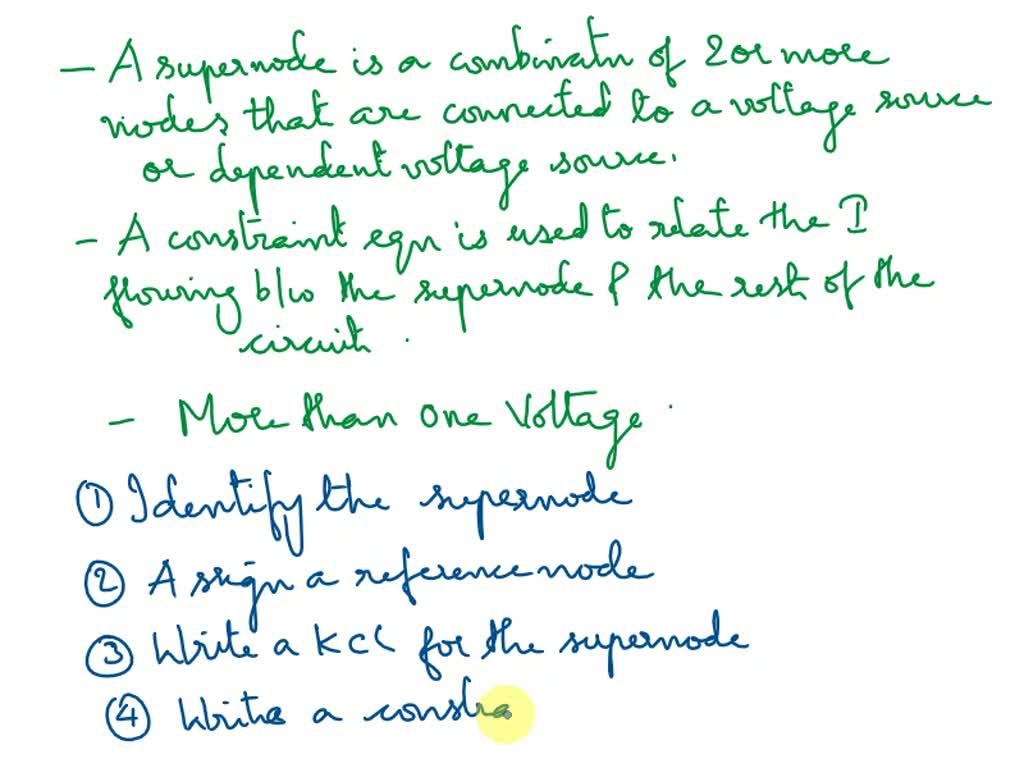 - A supernode is a combinatn of 2 or more
nodes that are connected to a voltage source
or dependent voltage source.
- A constraint eqn is used to relate the I
flowing b/w the supernode & the rest of the
circuit.
- More than one Voltage.
① Identify the supernode
② Assign a reference node
③ Write a KCL for the supernode
④ Write a constra